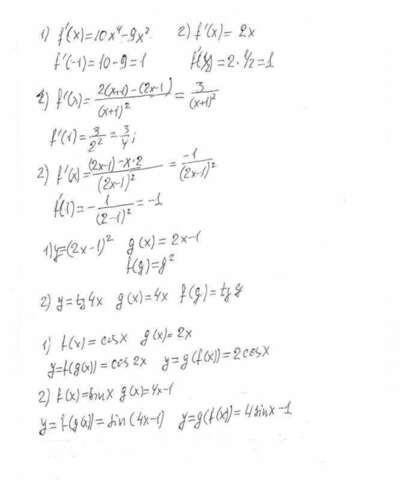 1) f'(x)=10x⁴-9x² 2) f'(x)= 2x
f'(-1)=10-9=1 f'(½)=2·1/2=1
2) f'(x)= (2(x+1)-(2x-1))/(x+1)² = 3/(x+1)²
f'(1)= 3/2² = 3/4;
2) f'(x)= ((2x-1)-x·2)/(2x-1)² = -1/(2x-1)²
f'(1)= - 1/(2-1)² = -1
1) y=(2x-1)² g(x)=2x-1
f(g)=g²
2) y=tg4x g(x)=4x f(g)=tg g
1) f(x)=cosx g(x)=2x
y=f(g(x))=cos2x y=g(f(x))=2cosx
2) f(x)=sinx g(x)=4x-1
y=f(g(x))=sin(4x-1) y=g(f(x))=4sinx-1